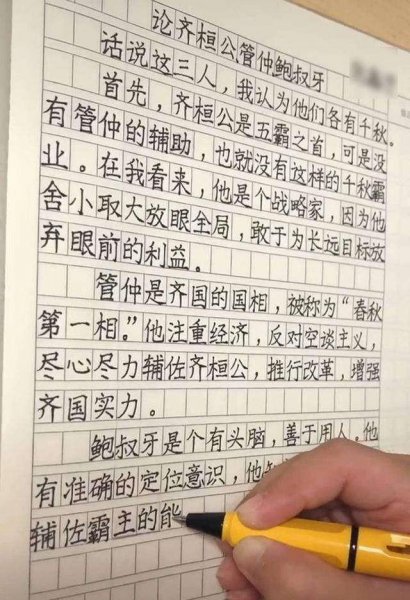 论齐桓公管仲鲍叔牙
话说这三人，我认为他们各有千秋。
首先，齐桓公是五霸之首，可是没
有管仲的辅助，也就没有这样的千秋霸
业。在我看来，他是个战略家，因为他
舍小取大放眼全局，敢于为长远目标放
弃眼前的利益。
管仲是齐国的国相，被称为“春秋
第一相。”他注重经济，反对空谈主义，
尽心尽力辅佐齐桓公，推行改革，增强
齐国实力。
鲍叔牙是个有头脑，善于用人。他
有准确的定位意识，他
辅佐霸主的能